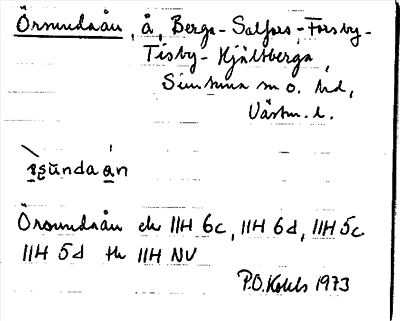 Örsundaån, å, Berga-Salfors-Forsby-
Tisby-Hjältberga,
Simtuna m o. hd,
Västm. l.
Örsundaån ek 11H 6c, 11H 6d, 11H 5c
11H 5d tk 11H NV
P.O. 1973